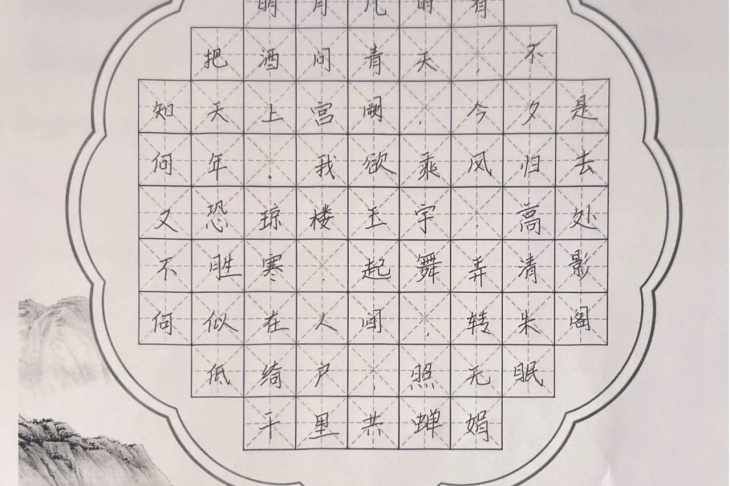 明月几时有
把酒问青天，不
知天上宫阙，今夕是
何年。我欲乘风归去
又恐琼楼玉宇，高处
不胜寒。起舞弄清影
何似在人间，转朱阁
低绮户，照无眠
千里共蝉娟